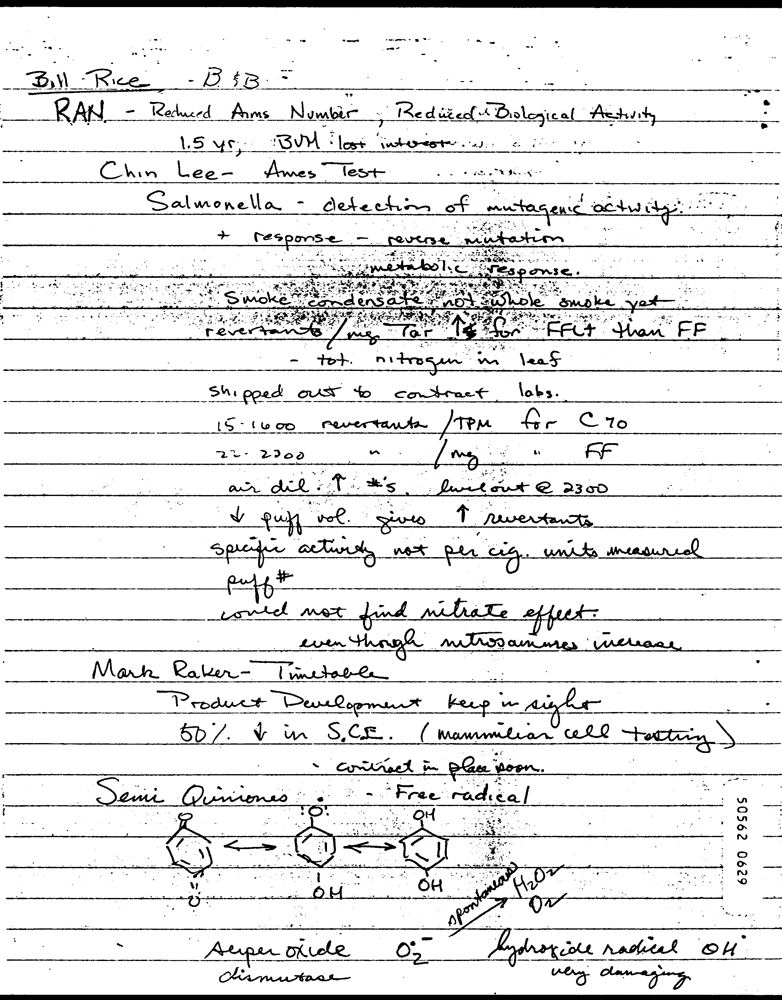 Bill Rice - B&B -
RAN - Reduced Ames Number, Reduced Biological Activity
1.5 yr, BVM lost interest
Chin Lee - Ames Test
Salmonella - detection of mutagenic activity.
+ response - reverse mutation
metabolic response.
Smoke condensate not whole smoke yet
revertants/mg Tar ↑ for FFLT than FF
- tot. nitrogen in leaf
shipped out to contract labs.
15-1600 revertants /TPM for C 70
22-2300 " /mg " FF
air dil. ↑ #'s. level out @ 2300
↓ puff vol. gives ↑ revertants
specific activity not per cig. units measured
puff #
could not find nitrate effect.
even though nitrosamines increase
Mark Raker - Timetable
Product Development keep in sight
50% ↓ in S.C.E. (mammilian cell testing)
- contract in place soon.
Semi Quiniones - Free radical
O :O: OH
O OH OH
spontaneous H2O2
O2
Superoxide O2- hydroxide radical OH·
dismutase very damaging
50562 0629